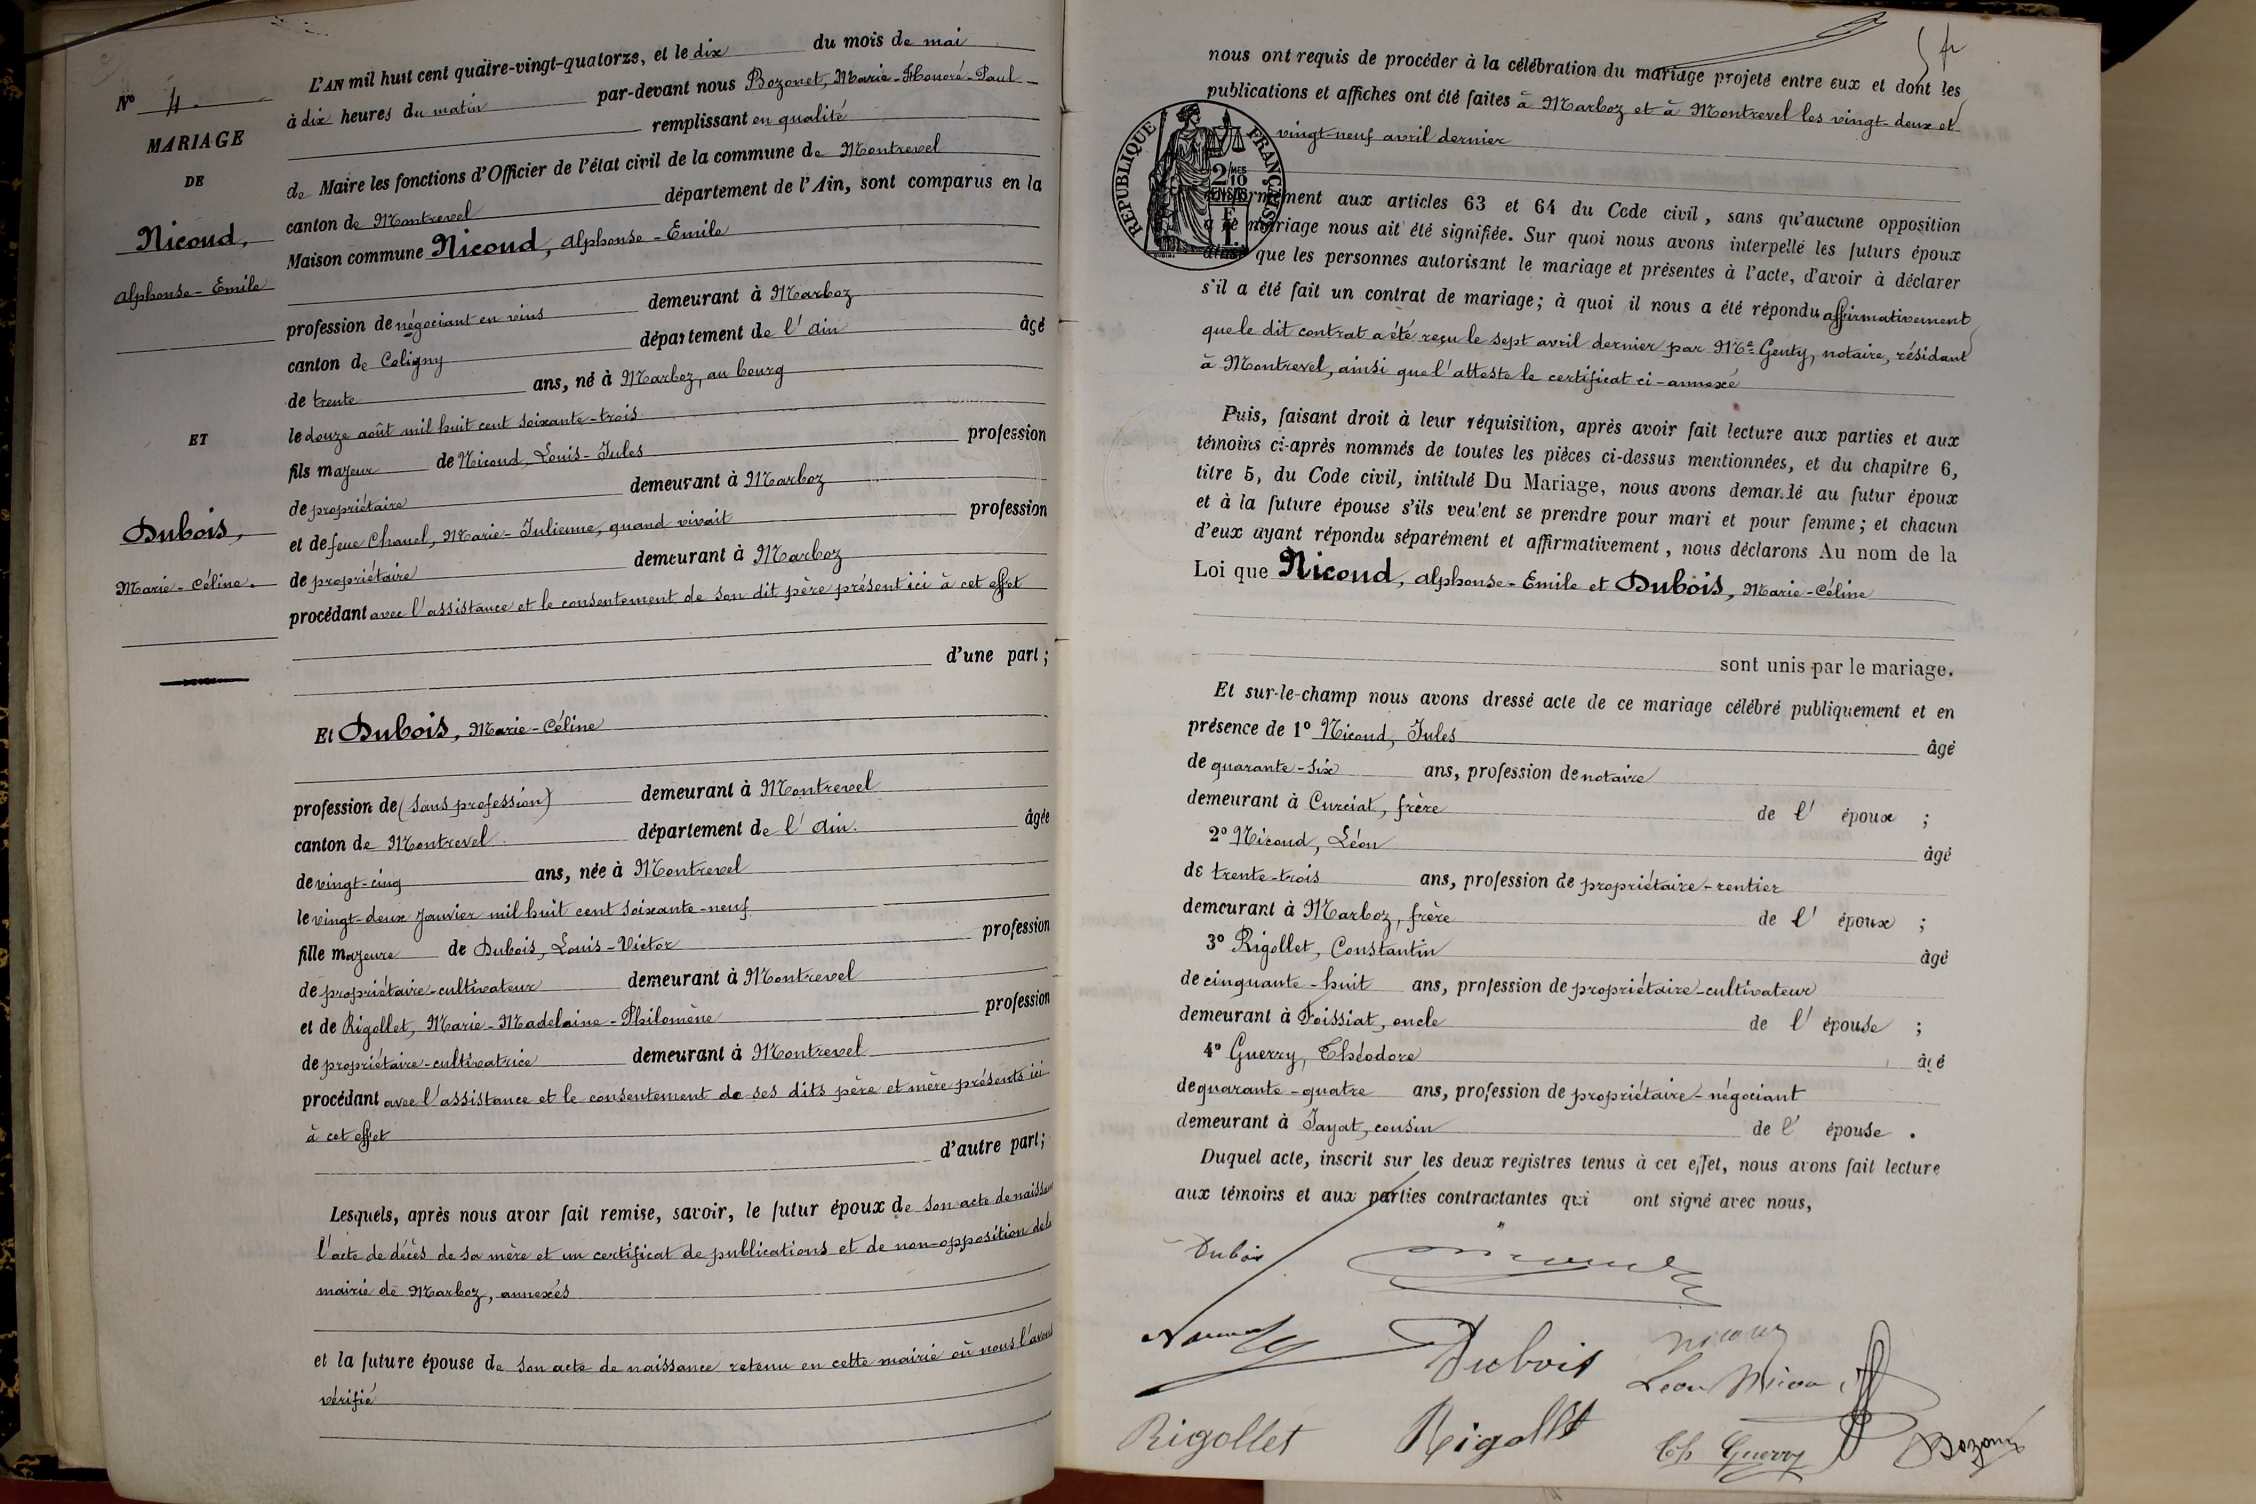 N° 4.
MARIAGE
DE
Nicoud,
Alphonse-Emile
ET
Dubois,
Marie-Céline.
L'AN mil huit cent quatre-vingt-quatorze, et le dix du mois de mai
à dix heures du matin par-devant nous Bozonet, Marie-Honoré-Paul
remplissant en qualité
de Maire les fonctions d'Officier de l'état civil de la commune de Montrevel
canton de Montrevel département de l'Ain, sont comparus en la
Maison commune Nicoud, Alphonse-Emile
profession de négociant en vins demeurant à Marboz
canton de Coligny département de l'Ain âgé
de trente ans, né à Marboz, au bourg
le douze août mil huit cent soixante-trois
fils majeur de Nicoud, Louis-Jules profession
de propriétaire demeurant à Marboz
et de feue Chanel, Marie-Julienne, quand vivait profession
de propriétaire demeurant à Marboz
procédant avec l'assistance et le consentement de son dit père présent ici à cet effet
d'une part ;
Et Dubois, Marie-Céline
profession de (sans profession) demeurant à Montrevel
canton de Montrevel département de l'Ain. âgée
de vingt-cinq ans, née à Montrevel
le vingt-deux Janvier mil huit cent soixante-neuf
fille majeure de Dubois, Louis-Victor profession
de propriétaire-cultivateur demeurant à Montrevel
et de Rigollet, Marie-Madelaine-Philomène profession
de propriétaire-cultivatrice demeurant à Montrevel
procédant avec l'assistance et le consentement de ses dits père et mère présents ici
à cet effet
d'autre part ;
Lesquels, après nous avoir fait remise, savoir, le futur époux de son acte de naissance
l'acte de décès de sa mère et un certificat de publications et de non-opposition de la
mairie de Marboz, annexés
et la future épouse de son acte de naissance retenu en cette mairie où nous l'avons
vérifié
nous ont requis de procéder à la célébration du mariage projeté entre eux et dont les
publications et affiches ont été faites à Marboz et à Montrevel les vingt-deux et
vingt-neuf avril dernier
REPUBLIQUE FRANÇAISE
2/10 MES
EN SUS
conformément aux articles 63 et 64 du Code civil, sans qu'aucune opposition
à ce mariage nous ait été signifiée. Sur quoi nous avons interpellé les futurs époux
ainsi que les personnes autorisant le mariage et présentes à l'acte, d'avoir à déclarer
s'il a été fait un contrat de mariage ; à quoi il nous a été répondu affirmativement
que le dit contrat a été reçu le sept avril dernier par Me Genty, notaire, résidant
à Montrevel, ainsi que l'atteste le certificat ci-annexé
Puis, faisant droit à leur réquisition, après avoir fait lecture aux parties et aux
témoins ci-après nommés de toutes les pièces ci-dessus mentionnées, et du chapitre 6,
titre 5, du Code civil, intitulé Du Mariage, nous avons demandé au futur époux
et à la future épouse s'ils veulent se prendre pour mari et pour femme ; et chacun
d'eux ayant répondu séparément et affirmativement, nous déclarons Au nom de la
Loi que Nicoud, Alphonse-Emile et Dubois, Marie-Céline
sont unis par le mariage.
Et sur-le-champ nous avons dressé acte de ce mariage célébré publiquement et en
présence de 1° Nicoud, Jules âgé
de quarante-six ans, profession de notaire
demeurant à Curciat, frère de l'époux ;
2° Nicoud, Léon âgé
de trente-trois ans, profession de propriétaire-rentier
demeurant à Marboz, frère de l'époux ;
3° Rigollet, Constantin âgé
de cinquante-huit ans, profession de propriétaire-cultivateur
demeurant à Foissiat, oncle de l'épouse ;
4° Guerry, Théodore âgé
de quarante-quatre ans, profession de propriétaire-négociant
demeurant à Jayat, cousin de l'épouse.
Duquel acte, inscrit sur les deux registres tenus à cet effet, nous avons fait lecture
aux témoins et aux parties contractantes qui ont signé avec nous,
Dubois
Dubois
Léon Nicoud
Rigollet Rigollet Th Guerry Bozonet